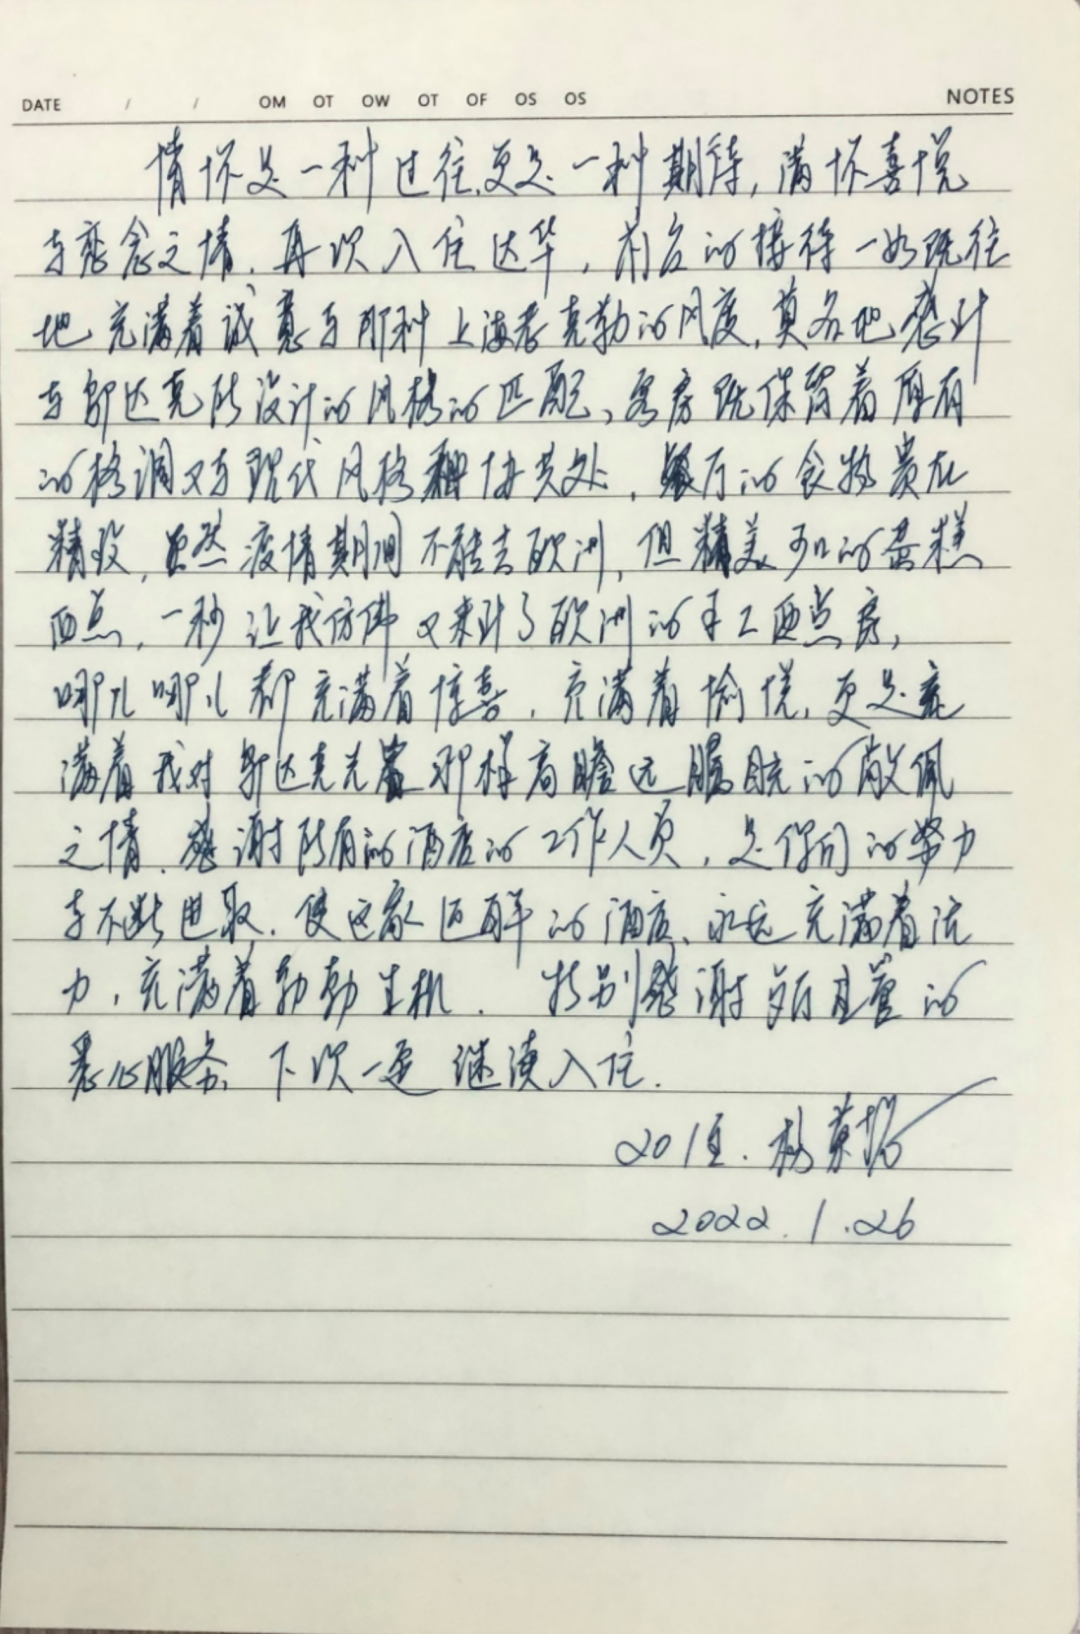 DATE / / OM OT OW OT OF OS OS NOTES
情怀是一种过往,更是一种期待,满怀喜悦
与恋念之情,再次入住达华,前台的接待一如既往
地充满着诚意与那种上海老克勒的风度,莫名地感到
与邬达克所设计的风格的匹配、客房既保留着原有
的格调又与现代风格和协共处,餐厅的食物贵在
精致,虽然疫情期间不能去欧洲,但精美可口的蛋糕
西点,一秒让我仿佛又来到了欧洲的手工西点房,
哪儿哪儿都充满着惊喜,充满着愉悦,更是充
满着我对邬达克先辈那样高瞻远瞩的敬佩
之情.感谢所有的酒店的工作人员,是你们的努力
与不断进取.使这家百年的酒店、永远充满着活
力,充满着勃勃生机. 特别感谢 主管的
悉心服务、下次一定继续入住.
201室.杨
2022.1.26